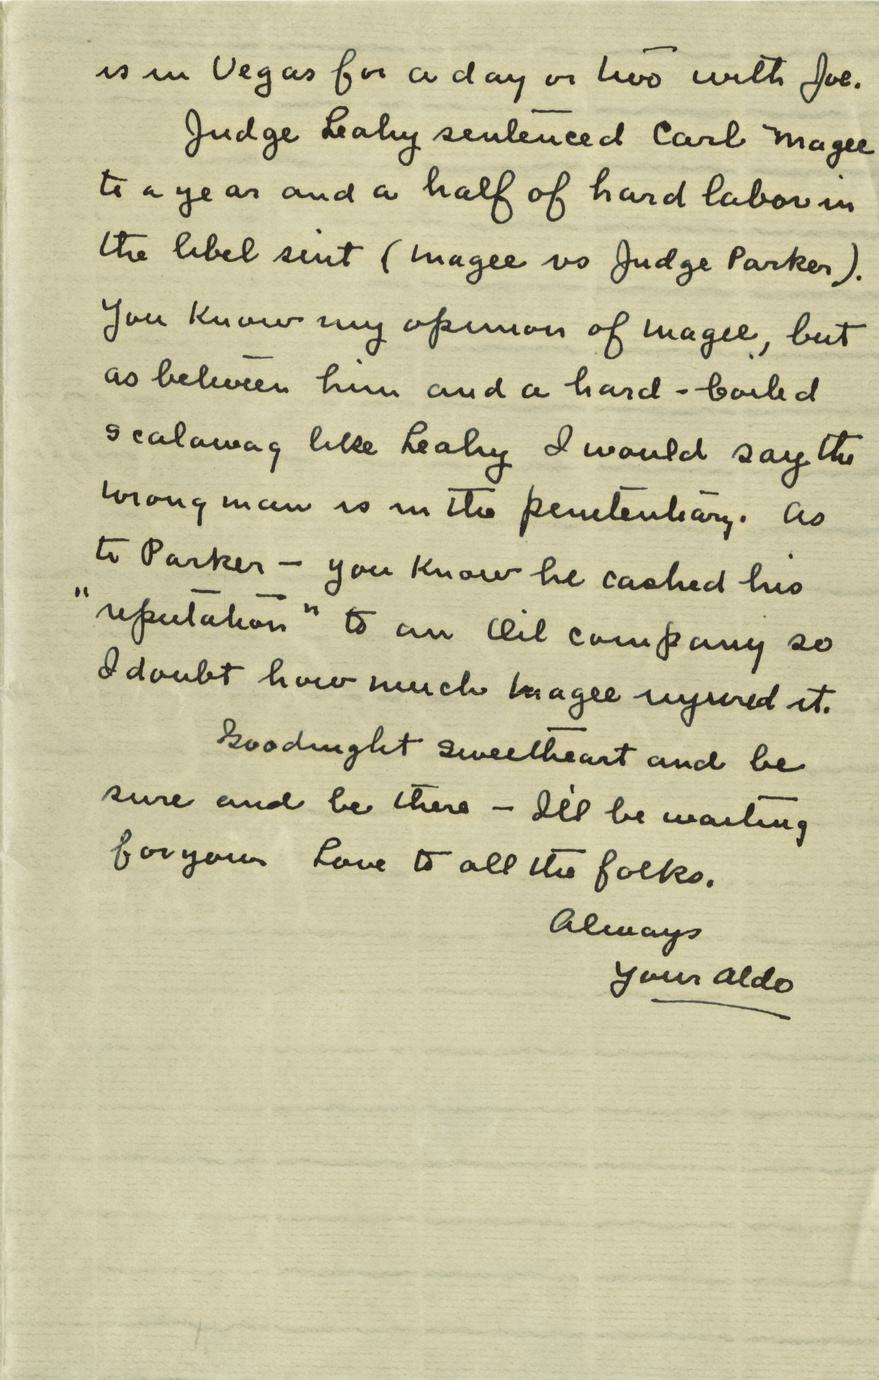 is in Vegas for a day or two with Joe.
Judge Leahy sentenced Carl Magee
to a year and a half of hard labor in
the libel suit (Magee vs Judge Parker).
You know my opinion of Magee, but
as between him and a hard-boiled
scalawag like Leahy I would say the
wrong man is in the penitentiary. As
to Parker — you know he cashed his
"reputation" to an Oil company so
I doubt how much Magee injured it.
Goodnight sweetheart and be
sure and be there — I'll be waiting
for you. Love to all the folks.
Always
Your Aldo